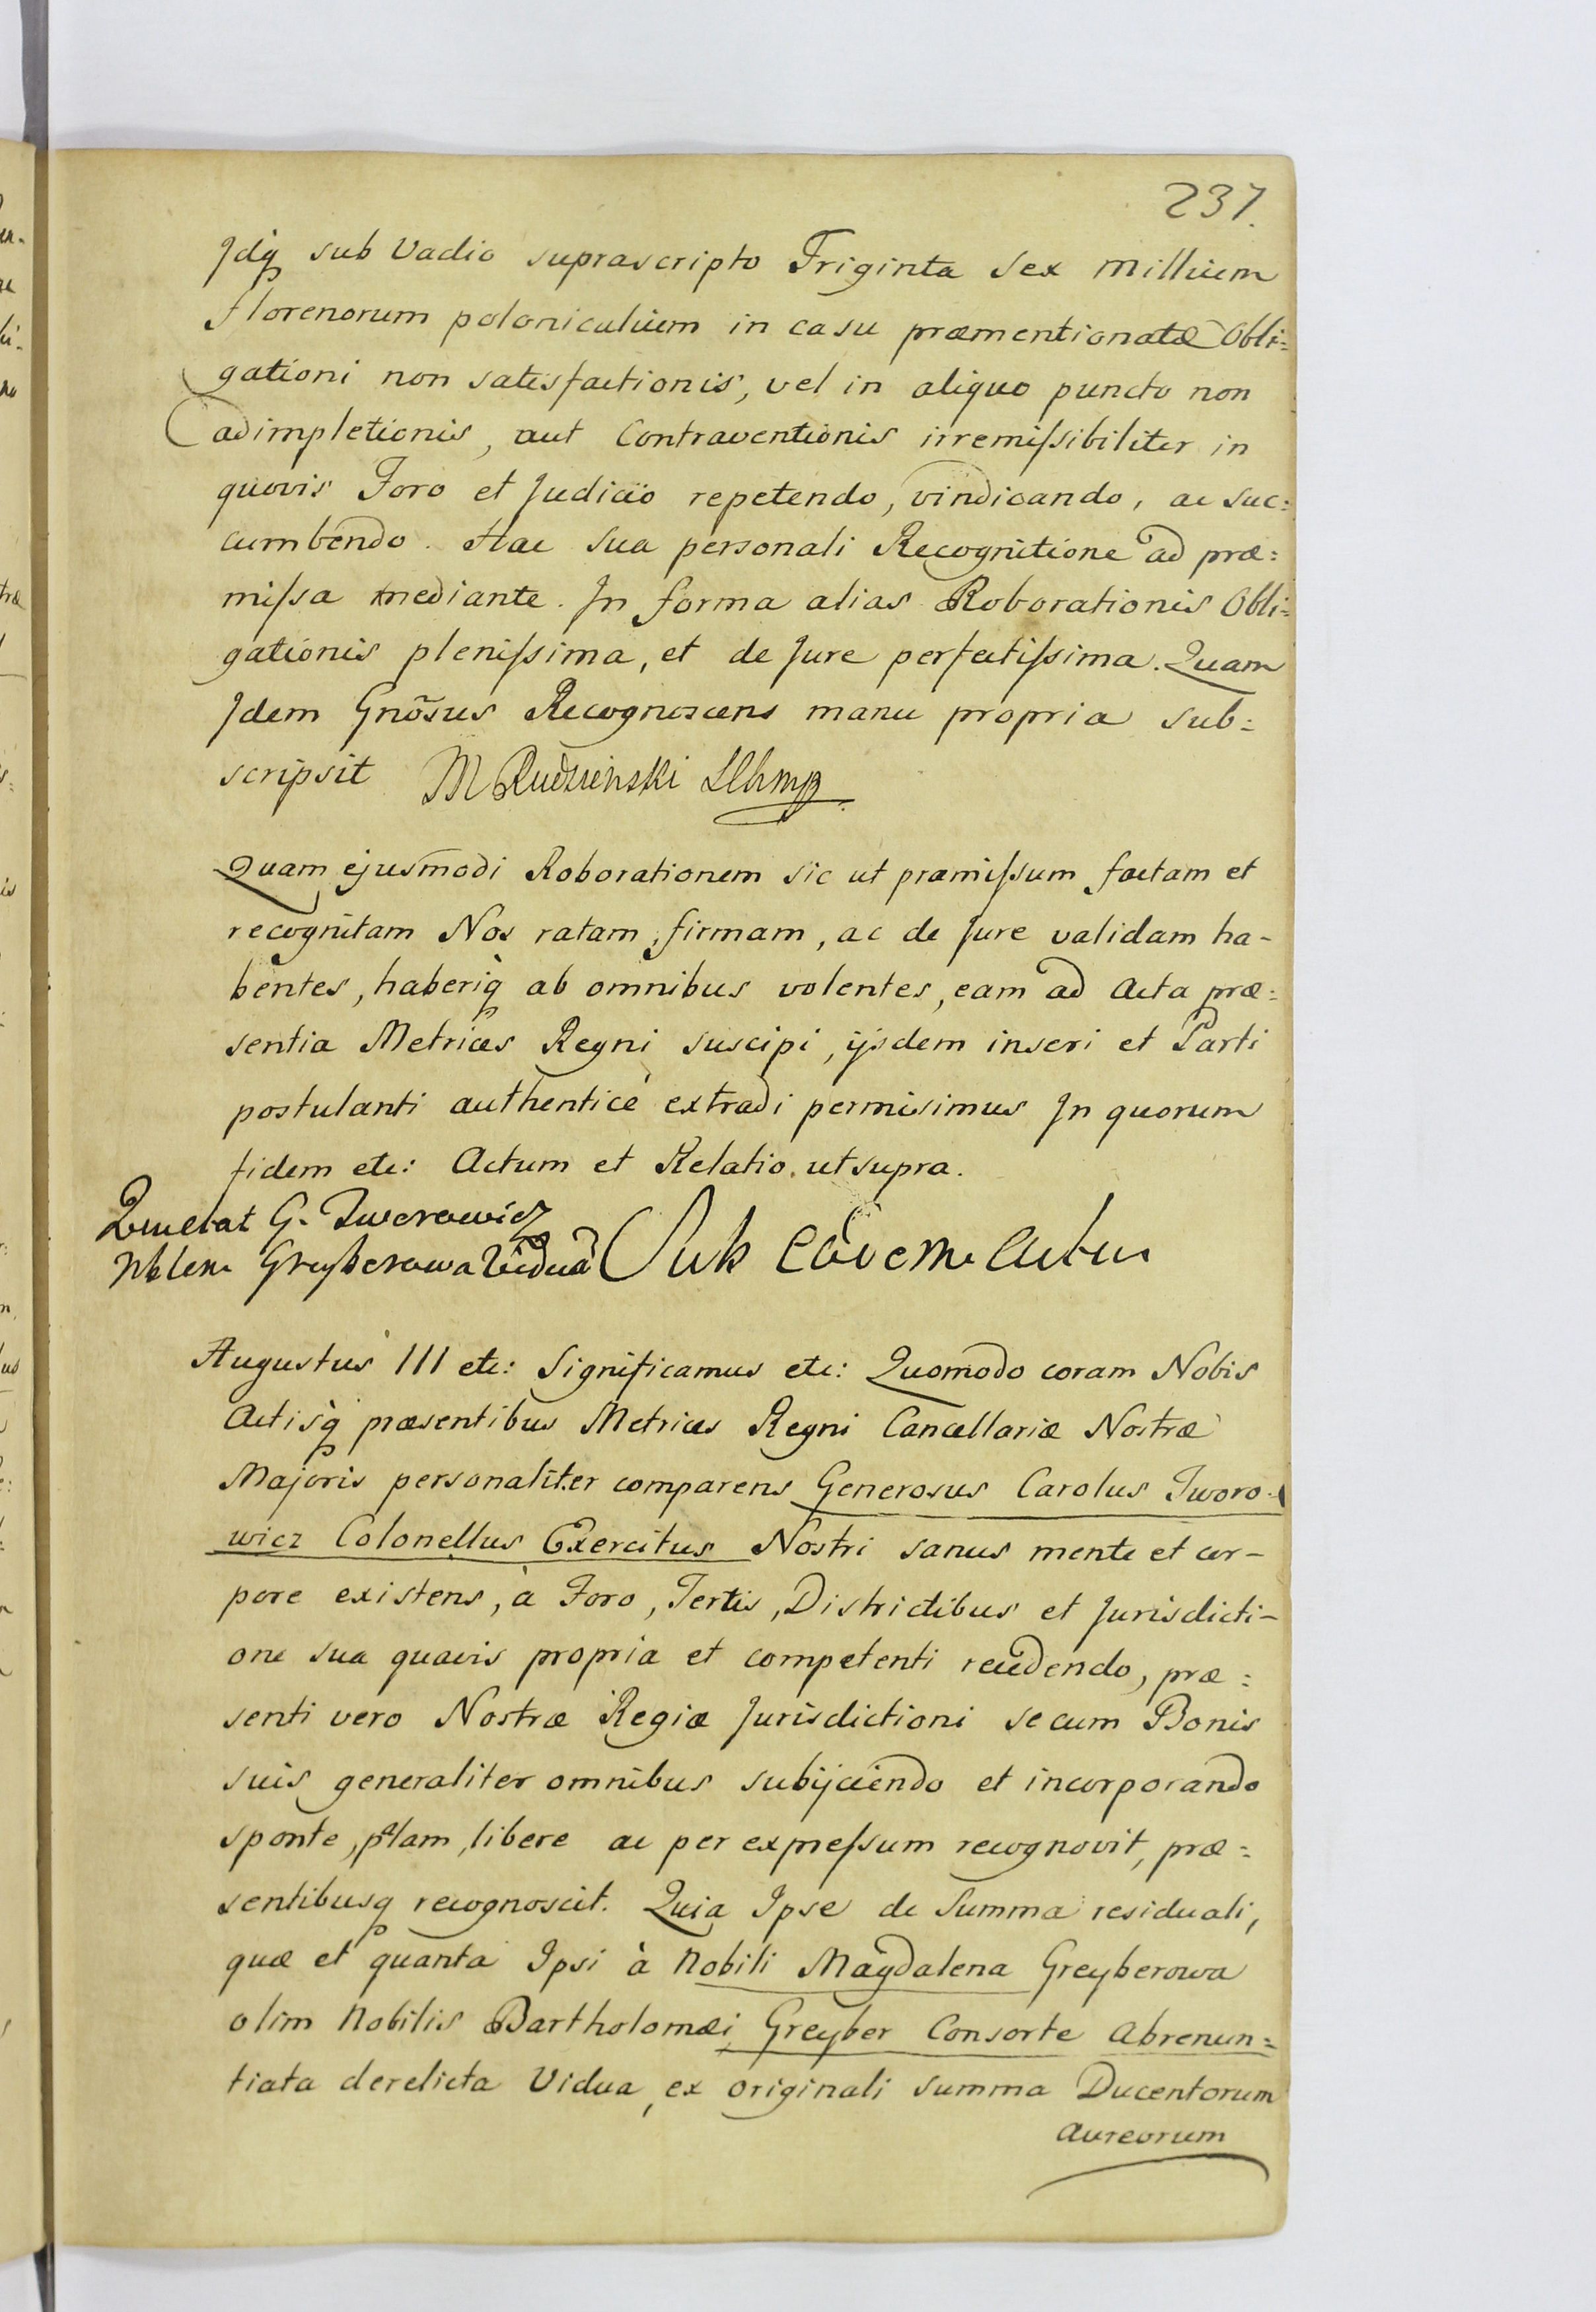 237.
Jdq₃ sub Vadio suprascripto Triginta Sex Millium
florenorum polonicalium in casu præmentionatæ Obli=
gationi non satisfactionis, vel in aliquo puncto non
adimpletionis, aut Contraventionis irremissibiliter in
quovis Foro et Judicio repetendo, vindicando, ac suc=
cumbendo. Hac sua personali Recognitione ad præ=
missa mediante. Jn forma alias Roborationis Obli=
gationis plenissima, et de Jure perfectissima. Quam
Jdem Gnõsus Recognoscens manu propria sub=
scripsit M Rudzienski
Quam ejusmodi Roborationem sic ut præmissum factam et
recognitam Nos ratam, firmam, ac de Jure validam ha-
bentes, haberiq₃ ab omnibus volentes, eam ad Acta præ=
sentia Metrices Regni suscipi, ijsdem inseri et Parti
postulanti authenticè extradi permisimus Jn quorum
fidem etc: Actum et Relatio ut supra.
G. Tworowicz
Greyberowa Viduã Sub eodem Actu
Augustus III etc: Significamus etc: Quomodo coram Nobis
Actisq₃ præsentibus Metrices Regni Cancellariæ Nostræ
Majoris personaliter comparens Generosus Carolus Tworo-
wicz Colonellus Exercitus Nostri sanus mente et cor-
pore existens, à Foro, Tertis, Districtibus et Jurisdicti-
one sua quavis propria et competenti recedendo, præ=
senti vero Nostræ Regiæ Jurisdictioni se cum Bonis
suis generaliter omnibus subijciendo et incorporando
sponte, palam, libere ac per expressum recognovit, præ=
sentibusq₃ recognoscit. Quia Ipse de Summa residuali,
quæ et quanta Ipsi à Nobili Magdalena Greyberowa
olim Nobilis Bartholomæi Greyber Consorte Abrenun=
tiata derelicta Vidua, ex originali summa Ducentorum
Aureorum